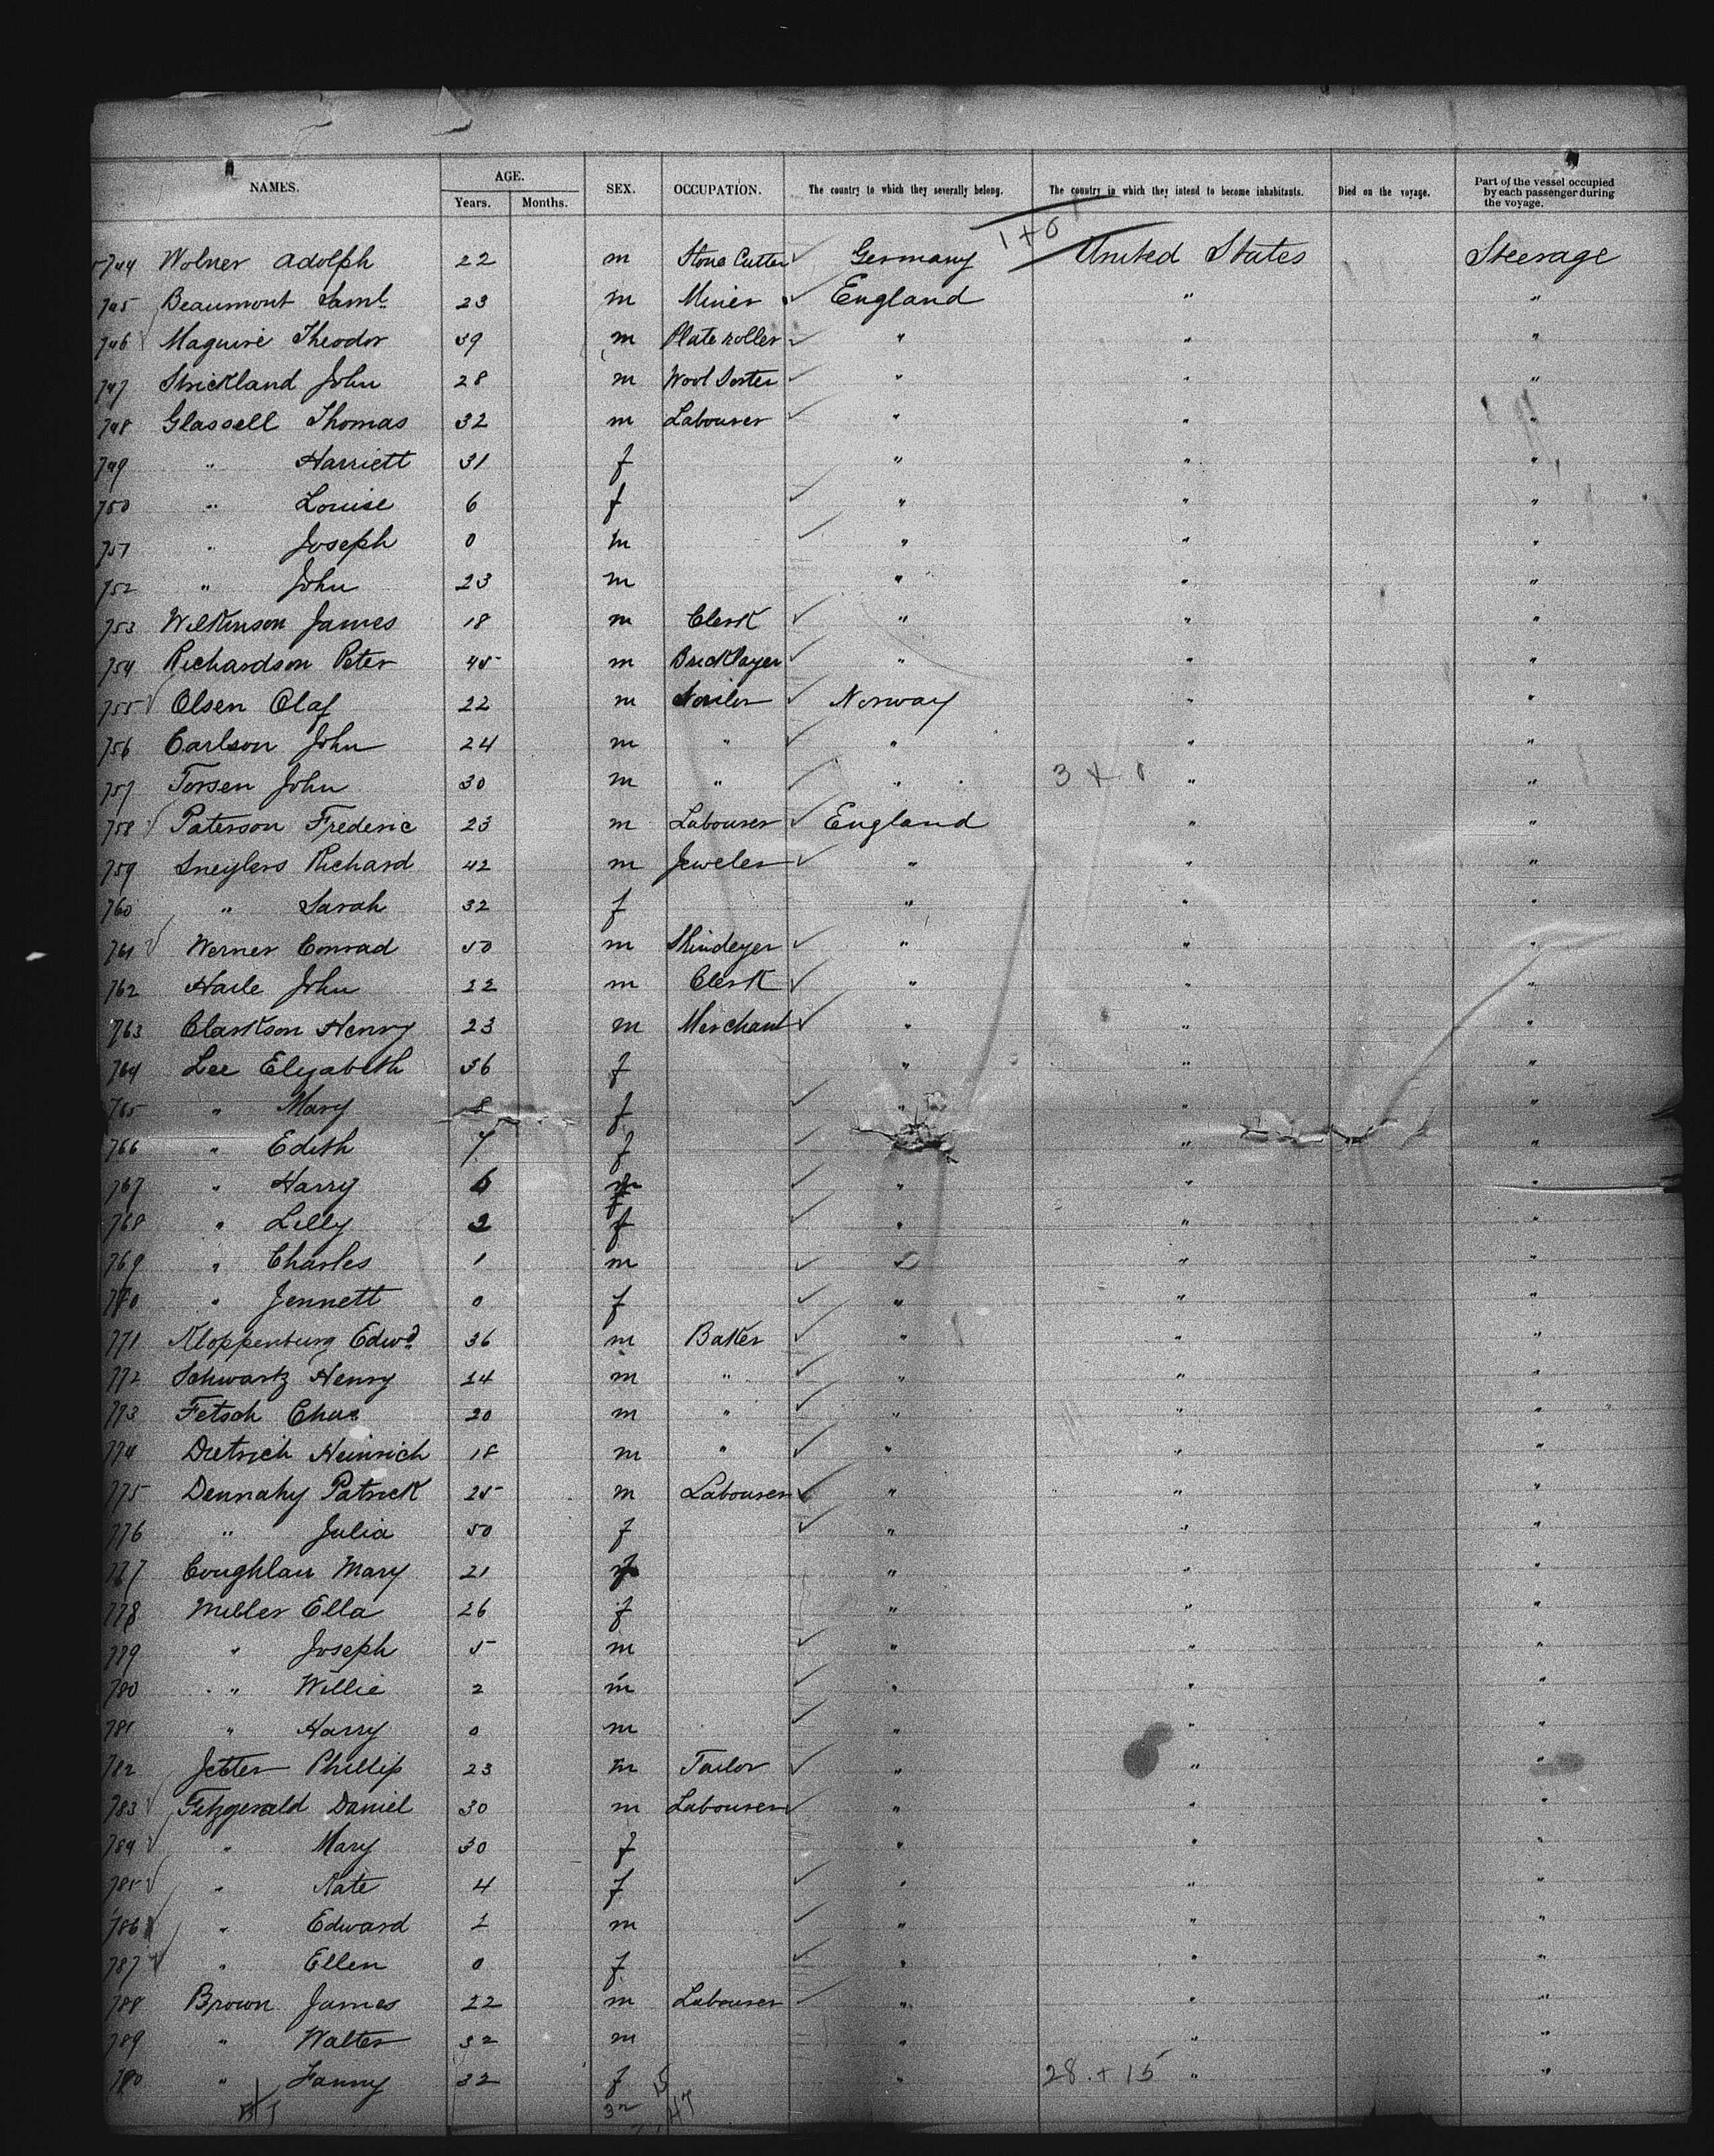 NAMES. AGE. SEX. OCCUPATION. The country to which they severally belong. The country in which they intend to become inhabitants. Died on the voyage. Part of the vessel occupied by each passenger during the voyage.
Years. Months.
1 + 0
744 Wolner Adolph 22 m Stone Cutter Germany United States Steerage
745 Beaumont Saml. 23 m Miner England " "
746 Maguire Theodor 39 m Plate roller " " "
747 Strickland John 28 m Wool Sorter " " "
748 Glassell Thomas 32 m Labourer " " "
749 " Harriett 31 f " " "
750 " Louise 6 f " " "
751 " Joseph 0 m " " "
752 " John 23 m " " "
753 Wilkinson James 18 m Clerk " " "
754 Richardson Peter 45 m Bricklayer " " "
755 Olsen Olaf 22 m Norway " "
756 Carlson John 24 m " " " "
757 Torsen John 30 m " " 3 + 0 " "
758 Paterson Frederic 23 m Labourer England " "
759 Sneylers Richard 42 m Jeweler " " "
760 " Sarah 32 f " " "
761 Werner Conrad 50 m Skindeyer " " "
762 Haile John 22 m Clerk " " "
763 Clarkson Henry 23 m Merchant " " "
764 Lee Elyabeth 36 f " " "
765 " Mary 8 f " " "
766 " Edith 7 f " " "
767 " Harry 6 f " " "
768 " Lilly 2 f " " "
769 " Charles 1 m " " "
770 " Jennett 0 f " " "
771 Kloppenburg Edwd. 36 m Baker " " "
772 Schwartz Henry 14 m " " " "
773 Fetsch Chas 20 m " " " "
774 Dietrich Heinrich 18 m " " " "
775 Dennahy Patrick 25 m Labourer " " "
776 " Julia 50 f " " "
777 Coughlan Mary 21 f " " "
778 Miller Ella 26 f " " "
779 " Joseph 5 m " " "
780 " Willie 2 m " " "
781 " Harry 0 m " " "
782 Jetter Phillip 23 m Tailor " " "
783 Fitzgerald Daniel 30 m Labourer " " "
784 " Mary 30 f " " "
785 " Kate 4 f " " "
786 " Edward 1 m " " "
787 " Ellen 0 f " " "
788 Brown James 22 m Labourer " " "
789 " Walter 32 m " " "
790 " Fanny 32 f " 28 + 15 " "
32 15 47